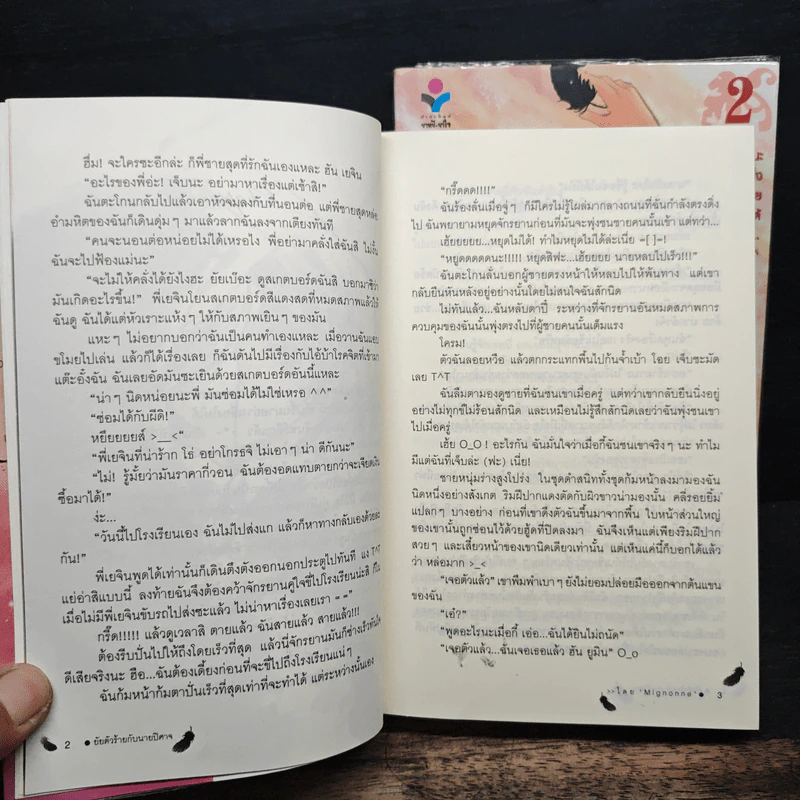 ฮึ่ม! จะใครซะอีกล่ะ ก็พี่ชายสุดที่รักฉันเองแหละ ฮัน เยจิน
“อะไรของพี่อ่ะ! เจ็บนะ อย่ามาหาเรื่องแต่เช้าสิ!”
ฉันตะโกนกลับไปแล้วเอาหัวจมลงกับที่นอนต่อ แต่พี่ชายสุดหล่อ
อำมหิตของฉันก็เดินตุ่ม ๆ มาแล้วลากฉันลงจากเตียงทันที
“คนจะนอนต่อหน่อยไม่ได้เหรอไง พี่อย่ามาคลั่งใส่ฉันสิ ไม่งั้น
ฉันจะไปฟ้องแม่นะ”
“จะไม่ให้คลั่งได้ยังไงฮะ ยัยเบ๊อะ ดูสเกตบอร์ดฉันสิ บอกมาซิว่า
มันเกิดอะไรขึ้น!” พี่เยจินโยนสเกตบอร์ดสีแดงสดที่หมดสภาพแล้วให้
ฉันดู ฉันได้แต่หัวเราะแห้ง ๆ ให้กับสภาพเยินๆ ของมัน
แหะๆ ไม่อยากบอกว่าฉันเป็นคนทำเองแหละ เมื่อวานฉันแอบ
ขโมยไปเล่น แล้วก็ได้เรื่องเลย ก็ฉันดันไปมีเรื่องกับไอ้บ้าโรคจิตที่เข้ามา
แต๊ะอั๋งฉัน ฉันเลยอัดมันซะเยินด้วยสเกตบอร์ดอันนี้แหละ
“น่าๆ นิดหน่อยนะพี่ มันซ่อมได้ไม่ใช่เหรอ ^^”
“ซ่อมได้กับผีดิ!”
หยึยยยยส์ >__<“
“พี่เยจินที่น่าร้าก โธ่ อย่าโกรธจิ ไม่เอาๆ น่า ดีกันนะ”
“ไม่! รู้มั้ยว่ามันราคากี่วอน ฉันต้องอดแทบตายกว่าจะเจียดเงิน
ซื้อมาได้!”
ง่ะ...
“วันนี้ไปโรงเรียนเอง ฉันไม่ไปส่งแก แล้วก็หาทางกลับเองด้วยละ
กัน!”
พี่เยจินพูดได้เท่านั้นก็เดินตึงตังออกนอกประตูไปทันที แง T^T
แย่อ่าสิแบบนี้ ลงท้ายฉันจึงต้องคว้าจักรยานคู่ใจขี่ไปโรงเรียนน่ะสิ ก็ใน
เมื่อไม่มีพี่เยจินขับรถไปส่งซะแล้ว ไม่น่าหาเรื่องเลยเรา = =“
กรี๊ด!!!!! แล้วดูเวลาสิ ตายแล้ว ฉันสายแล้ว สายแล้ว!!!
ต้องรีบปั่นไปให้ถึงโดยเร็วที่สุด แล้วนี่จักรยานมันก็ช่างเร็วทัน
ดีเสียจริงนะ ฮือ...ฉันต้องเดี้ยงก่อนที่จะขี่ไปถึงโรงเรียนแน่ๆ
ฉันก้มหน้าก้มตาปั่นเร็วที่สุดเท่าที่จะทำได้ แต่ระหว่างนั้นเอง
2 ● ยัยตัวร้ายกับนายปีศาจ
“กรี๊ดดด!!!!”
ฉันร้องลั่นเมื่อจู่ๆ ก็มีใครไม่รู้โผล่มากลางถนนที่ฉันกำลังตรงดิ่ง
ไป ฉันพยายามหยุดจักรยานก่อนที่มันจะพุ่งชนชายคนนั้นเข้า แต่ทว่า...
เฮ้ยยยยย...หยุดไม่ได้! ทำไมหยุดไม่ได้ล่ะเนี่ย =[ ]=!
“หยุดดดดดดนะ!!!!! หยุดสิฟะ...เฮ้ยยยย นายหลบไปเร็ว!!!”
ฉันตะโกนลั่นบอกผู้ชายตรงหน้าให้หลบไปให้พ้นทาง แต่เขา
กลับยืนหันหลังอยู่อย่างนั้นโดยไม่สนใจฉันสักนิด
ไม่ทันแล้ว...ฉันหลับตาปี๋ ระหว่างที่จักรยานอันหมดสภาพการ
ควบคุมของฉันนั้นพุ่งตรงไปที่ผู้ชายคนนั้นเต็มแรง
โครม!
ตัวฉันลอยหวือ แล้วตกกระแทกพื้นไปก้นจ้ำเบ้า โอย เจ็บชะมัด
เลย T^T
ฉันลืมตามองดูชายที่ฉันชนเขาเมื่อครู่ แต่ทว่าเขากลับยืนนิ่งอยู่
อย่างไม่ทุกข์ไม่ร้อนสักนิด และเหมือนไม่รู้สึกสักนิดเลยว่าฉันพุ่งชนเขา
ไปเมื่อครู่
เฮ้ย O_O ! อะไรกัน ฉันมั่นใจว่าเมื่อกี้ฉันชนเขาจริงๆ นะ ทำไม
มีแต่ฉันที่เจ็บล่ะ (ฟะ) เนี่ย!
ชายหนุ่มร่างสูงโปร่ง ในชุดดำสนิททั้งชุดก้มหน้าลงมามองฉัน
นิดหนึ่งอย่างสังเกต ริมฝีปากแดงตัดกับผิวขาวน่ามองนั้น คลี่รอยยิ้ม
แปลกๆ บางอย่าง ก่อนที่เขาดึงตัวฉันขึ้นมาจากพื้น ใบหน้าส่วนใหญ่
ของเขานั้นถูกซ่อนไว้ด้วยฮู้ดที่ปิดลงมา ฉันจึงเห็นแต่เพียงริมฝีปาก
สวยๆ และเสี้ยวหน้าของเขานิดเดียวเท่านั้น แต่เห็นแค่นี้ก็บอกได้แล้ว
ว่า หล่อมาก >_<
“เจอตัวแล้ว” เขาพึมพำเบาๆ ยังไม่ยอมปล่อยมือออกจากต้นแขน
ของฉัน
“เอ๋?”
“พูดอะไรนะเมื่อกี้ เอ่อ...ฉันได้ยินไม่ถนัด”
“เจอตัวแล้ว...ฉันเจอเธอแล้ว ฮัน ยูมิน” O_o
>>โดย 'Mignonne' ● 3
2